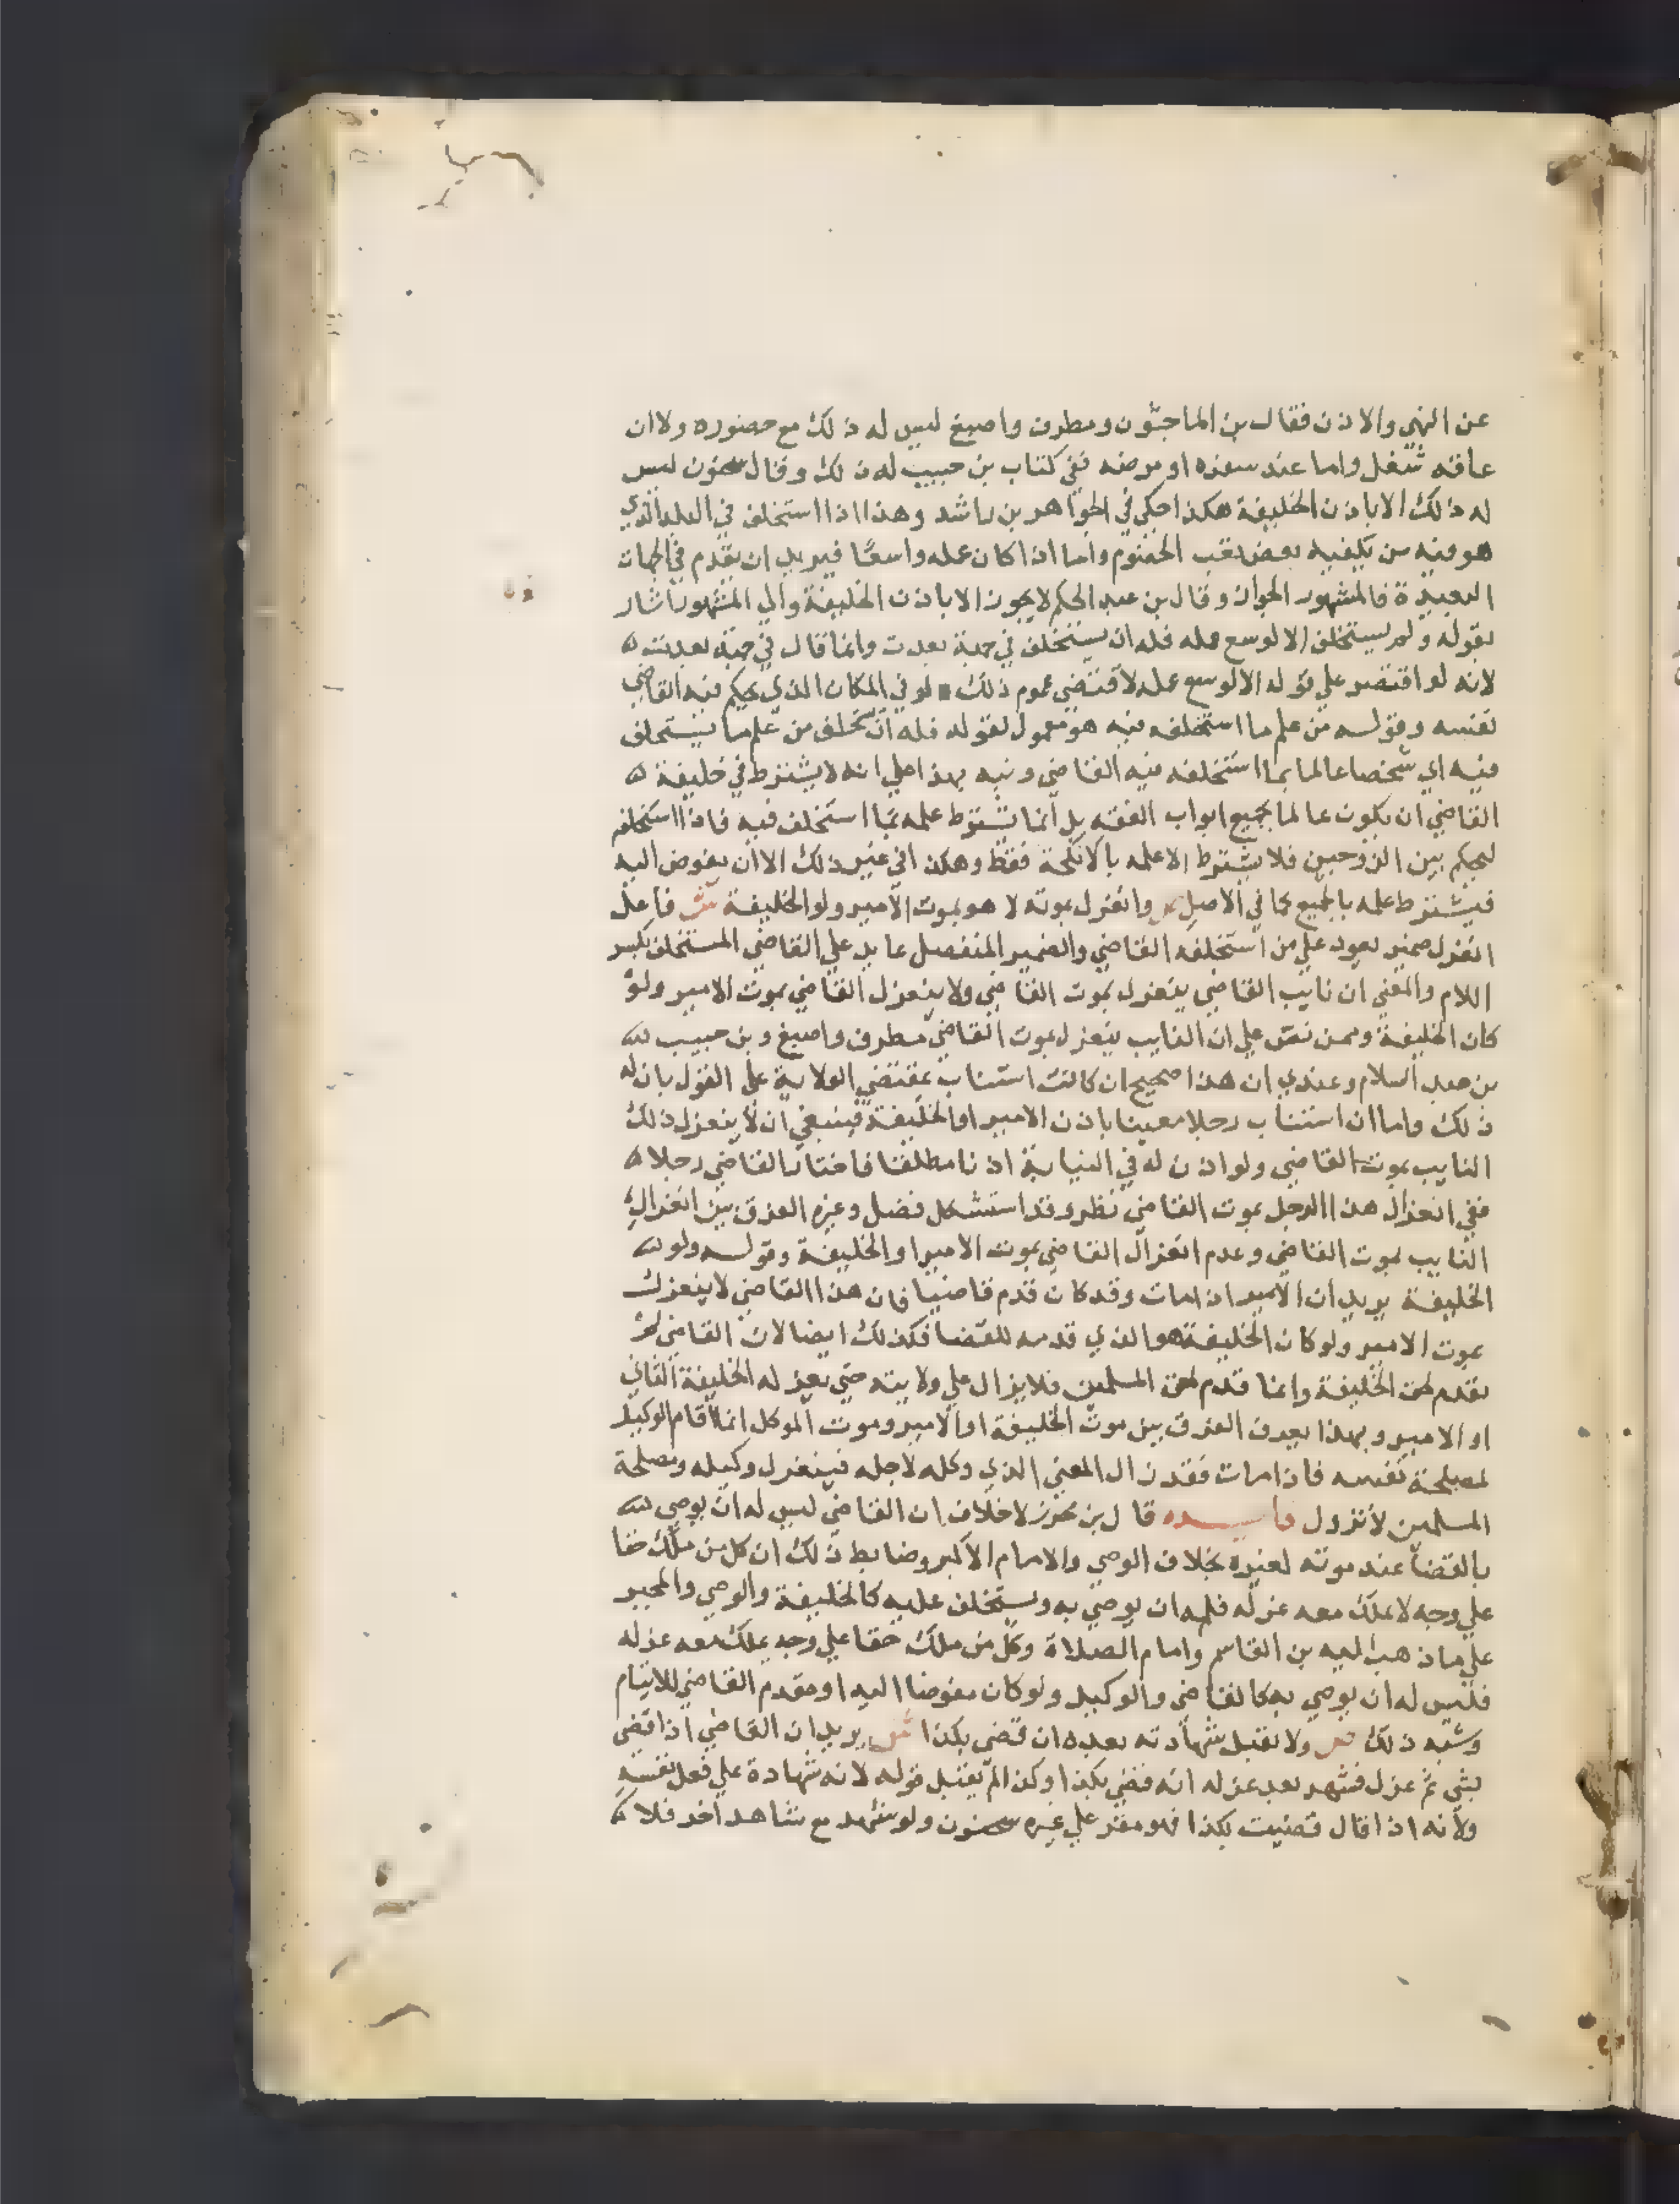 عن النهي والاذن فقال بن الماجشون ومطرف واصبغ ليس له ذلك مع حضوره ولا ان
عاقه شغل واما عند سفره او مرضه ففي كتاب بن حبيب له ذلك وقال سحنون ليس
له ذلك الا باذن الخليفة هكذا حكي في الجواهر بن راشد وهذا اذا استخلف في البلد الذي
هو فيه من يكفيه بعض تعب الخصوم واما اذا كان عمله واسعا فيريد ان يقدم في الجهات
البعيدة فالمشهور الجواز وقال بن عبد الحكم لا يجوز الا باذن الخليفة والي المشهور اشار
بقوله ولم يستخلف الا لوسع عمله فله ان يستخلف في جهة بعدت وانما قال في جهة بعدت
لانه لو اقتصر علي قوله الا لوسع عمله لاقتضي عموم ذلك لو في المكان الذي يحكم فيه القاضي
نفسه وقولـه من علم ما استخلفه فيه هو معمول لقوله فله ان يستخلف من علم ما يستخلف
فيه اي شخصا عالما بما استخلفه فيه القاضي ونبه بهذا علي انه لا يشترط في خليفة
القاضي ان يكون عالما بجميع ابواب الفقه بل انما يشترط علمه بما استخلف فيه فاذا استخلفه
ليحكم بين الزوجين فلا يشترط الا علمه بالانكحة فقط وهكذا في غير ذلك الا ان يفوض اليه
فيشترط علمه بالجميع كما في الاصل ص وانعزل بموته لا هو بموت الامير ولو الخليفة ش فاعل
انعزل ضمير يعود علي من استخلفه القاضي والضمير المنفصل عايد علي القاضي المستخلف بكسر
اللام والمعني ان نايب القاضي ينعزل بموت القاضي ولا ينعزل القاضي بموت الامير ولو
كان الخليفة وممن نص علي ان النايب ينعزل بموت القاضي مطرف واصبغ وبن حبيب
بن عبد السلام وعندي ان هذا صحيح ان كانت استناب بمقتضي الولاية علي القول بان له
ذلك واما ان استناب رجلا معينا باذن الامير او الخليفة فينبغي ان لا ينعزل ذلك
النايب بموت القاضي ولو اذن له في النيابة اذنا مطلقا فاختار القاضي رجلا
ففي انعزال هذا الرجل بموت القاضي نظر وقد استشكل فضل وغيره الفرق بين انعزال
النايب بموت القاضي وعدم انعزال القاضي بموت الامير او الخليفة وقولـه ولو
الخليفة يريد ان الامير اذا مات وقد كان قدم قاضيا فان هذا القاضي لا ينعزل
بموت الامير ولو كان الخليفة هو الذي قدمه للقضا فكذلك ايضا لان القاضي لم
يقدم لحق الخليفة وانما قدم لحق المسلمين فلا يزال علي ولايته حتي يعزله الخليفة الثاني
او الامير وبهذا يعرف الفرق بين موت الخليفة او الامير وموت الموكل انما اقام الوكيل
لمصلحة نفسه فاذا مات فقد زال المعني الذي وكله لاجله فينعزل وكيله ومصلحة
المسلمين لا تزول فايـده قال بن محرز لا خلاف ان القاضي ليس له ان يوصي
بالقضا عند موته لغيره بخلاف الوصي والامام الاكبر وضابط ذلك ان كل من ملك حقا
علي وجه لا يملك معه عزله فله ان يوصي به ويستخلف عليه كالخليفة والوصي والمجبر
علي ما ذهب اليه بن القاسم وامام الصلاة وكل من ملك حقا علي وجه يملك معه عزله
فليس له ان يوصي به كالقاضي والوكيل ولو كان مفوضا اليه او مقدم القاضي للايتام
وشبه ذلك ص ولا تقبل شهادته بعده ان قضي بكذا ش يريد ان القاضي اذا قضي
بشي ثم عزل فشهد بعد عزله انه قضي بكذا وكذا لم يقبل قوله لانه شهادة علي فعل نفسه
ولانه اذا قال قضيت بكذا فهو مقر علي غيره سحنون ولو شهد مع شاهد اخر فلا